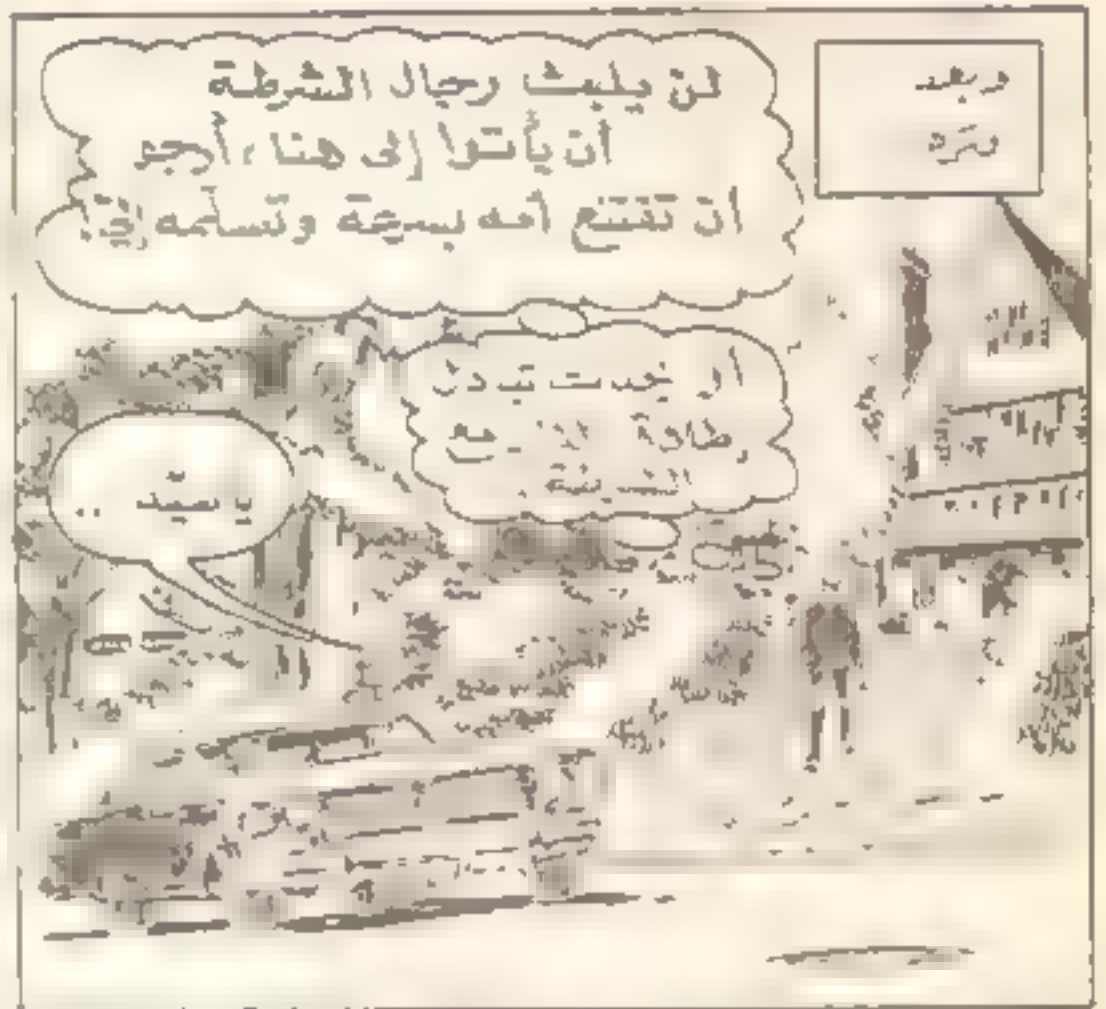 وبعد
فترة
لن يلبث رجال الشرطة
أن يأتوا إلى هنا، أرجو
ان تقتنع أمه بسرعة وتسلمه إليّ!
السفينة
يا سيد ..